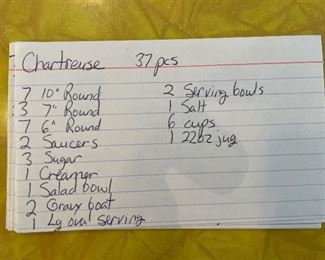 Chartreuse 37 pcs
7 10" Round
3 7" Round
7 6" Round
2 Saucers
3 Sugar
1 Creamer
1 Salad bowl
2 Gravy boat
1 Lg oval serving
2 Serving bowls
1 Salt
6 cups
1 22oz jug